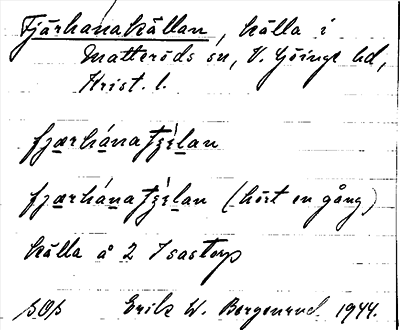 Fjärhanakällan, källa i
Matteröds sn, V. Göinge hd,
Krist. l.
fjærhána tjɛ̀lan
fjærhána tjɛ̀lan (hört en gång)
källa å 2 Isastorp
Erik W. 1944.